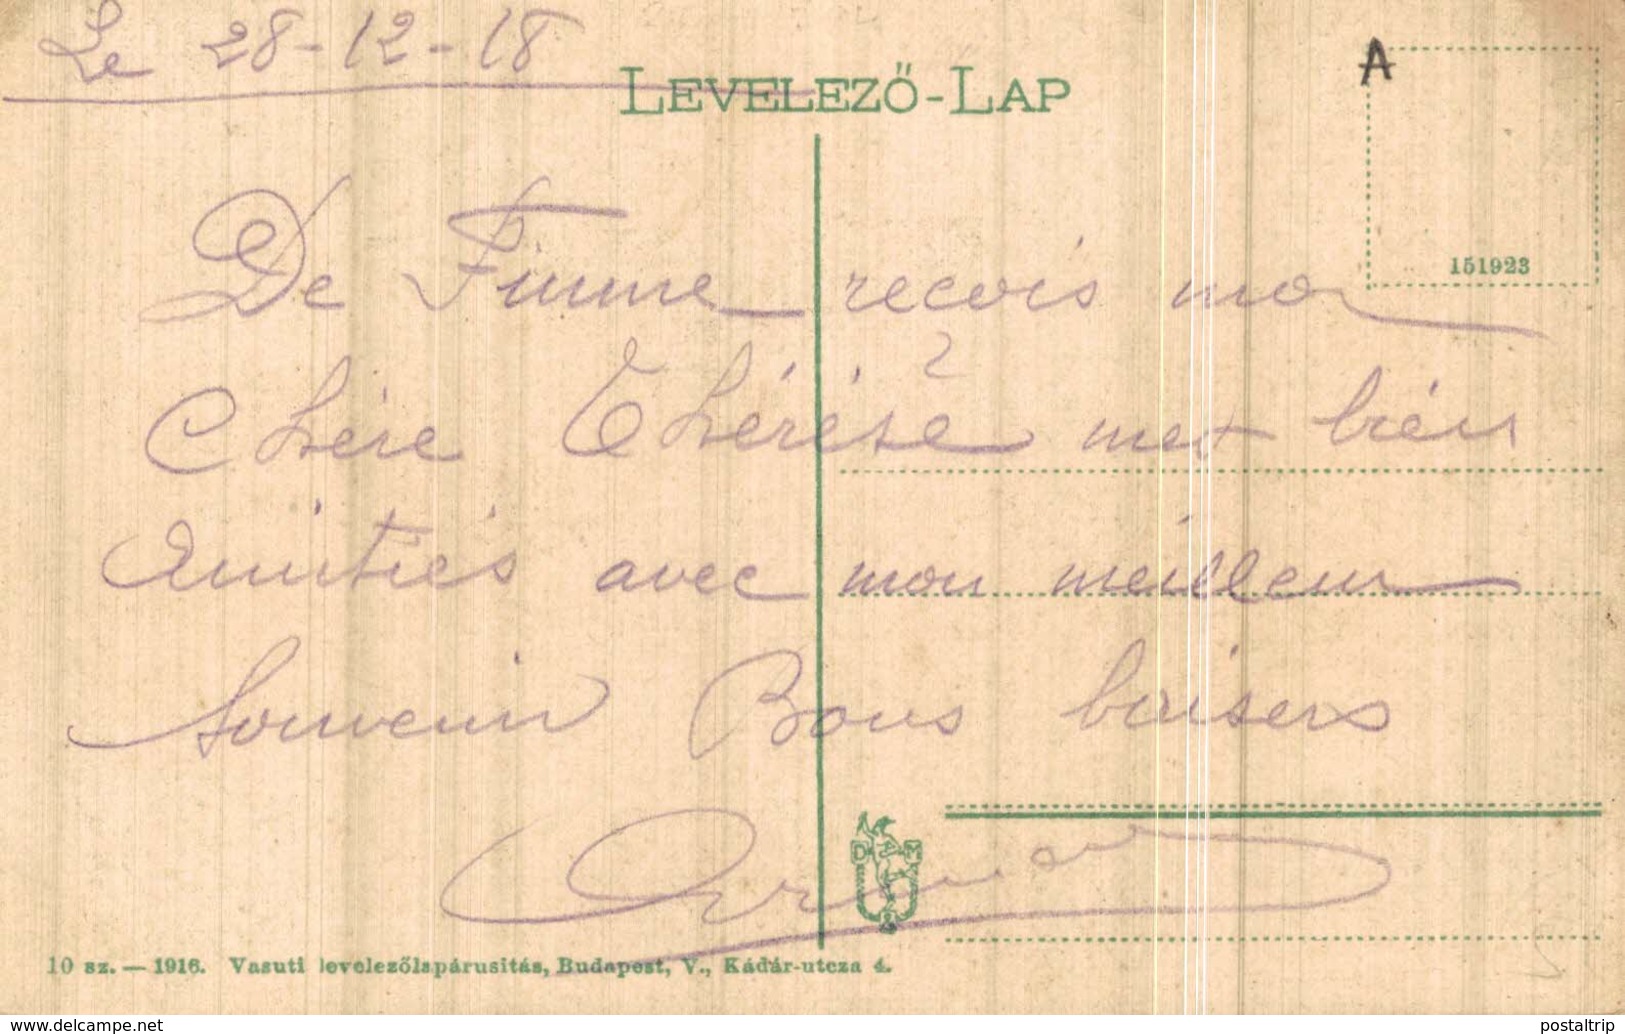 Le 28-12-18
LEVELEZŐ-LAP
A
151923
De Fiume recois ma
Chére Thérése mes bien
Amitiés avec mon meilleur
Souvenir Bons baisers
D M
10 sz. — 1916. Vasuti levelezőlapárusitás, Budapest, V., Kádár-utcza 4.
www.delcampe.net
postaltrip